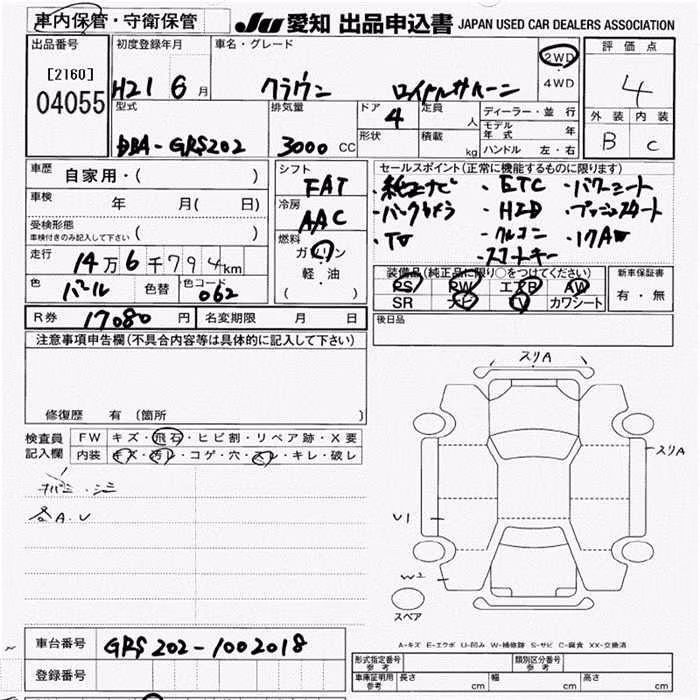 車内保管・守衛保管
JU 愛知 出品申込書 JAPAN USED CAR DEALERS ASSOCIATION
出品番号
[2160]
04055
初度登録年月
H21 6月
車名・グレード
クラウン ロイヤルサルーン
2WD
・
4WD
評価点
4
外装 内装
B C
型式
DBA-GRS202
排気量
3000 CC
ドア
4
形状
定員
人
積載
kg
ディーラー・並行
モデル年式 年
ハンドル 左・右
車歴 自家用・( )
車検 年 月( 日)
受検形態
車検付きのみ記入して下さい ( )
走行 14万6千794km
色 パール 色替 色コード 062
シフト
FAT
冷房
AAC
燃料
ガソリン
・
軽・油
( )
セールスポイント(正常に機能するものに限ります)
・純正ナビ ・ETC ・パワーシート
・バックカメラ ・HID ・プッシュスタート
・TV ・クルコン ・17AW
・スマートキー
装備品(純正品に限り○をつけてください)
PS PW エアB AW
SR ナビ TV カワシート
新車保証書
有・無
R券 17080円 名変期限 月 日
後日品
注意事項申告欄(不具合内容等は具体的に記入して下さい)
修復歴 有 (箇所 )
検査員
記入欄
FW キズ・飛石・ヒビ割・リペア跡・X要
内装 キズ・汚レ・コゲ・穴・スレ・キレ・破レ
・シミ
各A.U
スリA
スリA
U1
W2
スペア
A-キズ E-エクボ U-凹み W-補修跡 S-サビ C-腐食 XX-交換済
車台番号 GRS202-1002018
登録番号
形式指定番号
参考
類別区分番号
参考
車庫証明用
参考
長さ cm 幅 cm 高さ cm